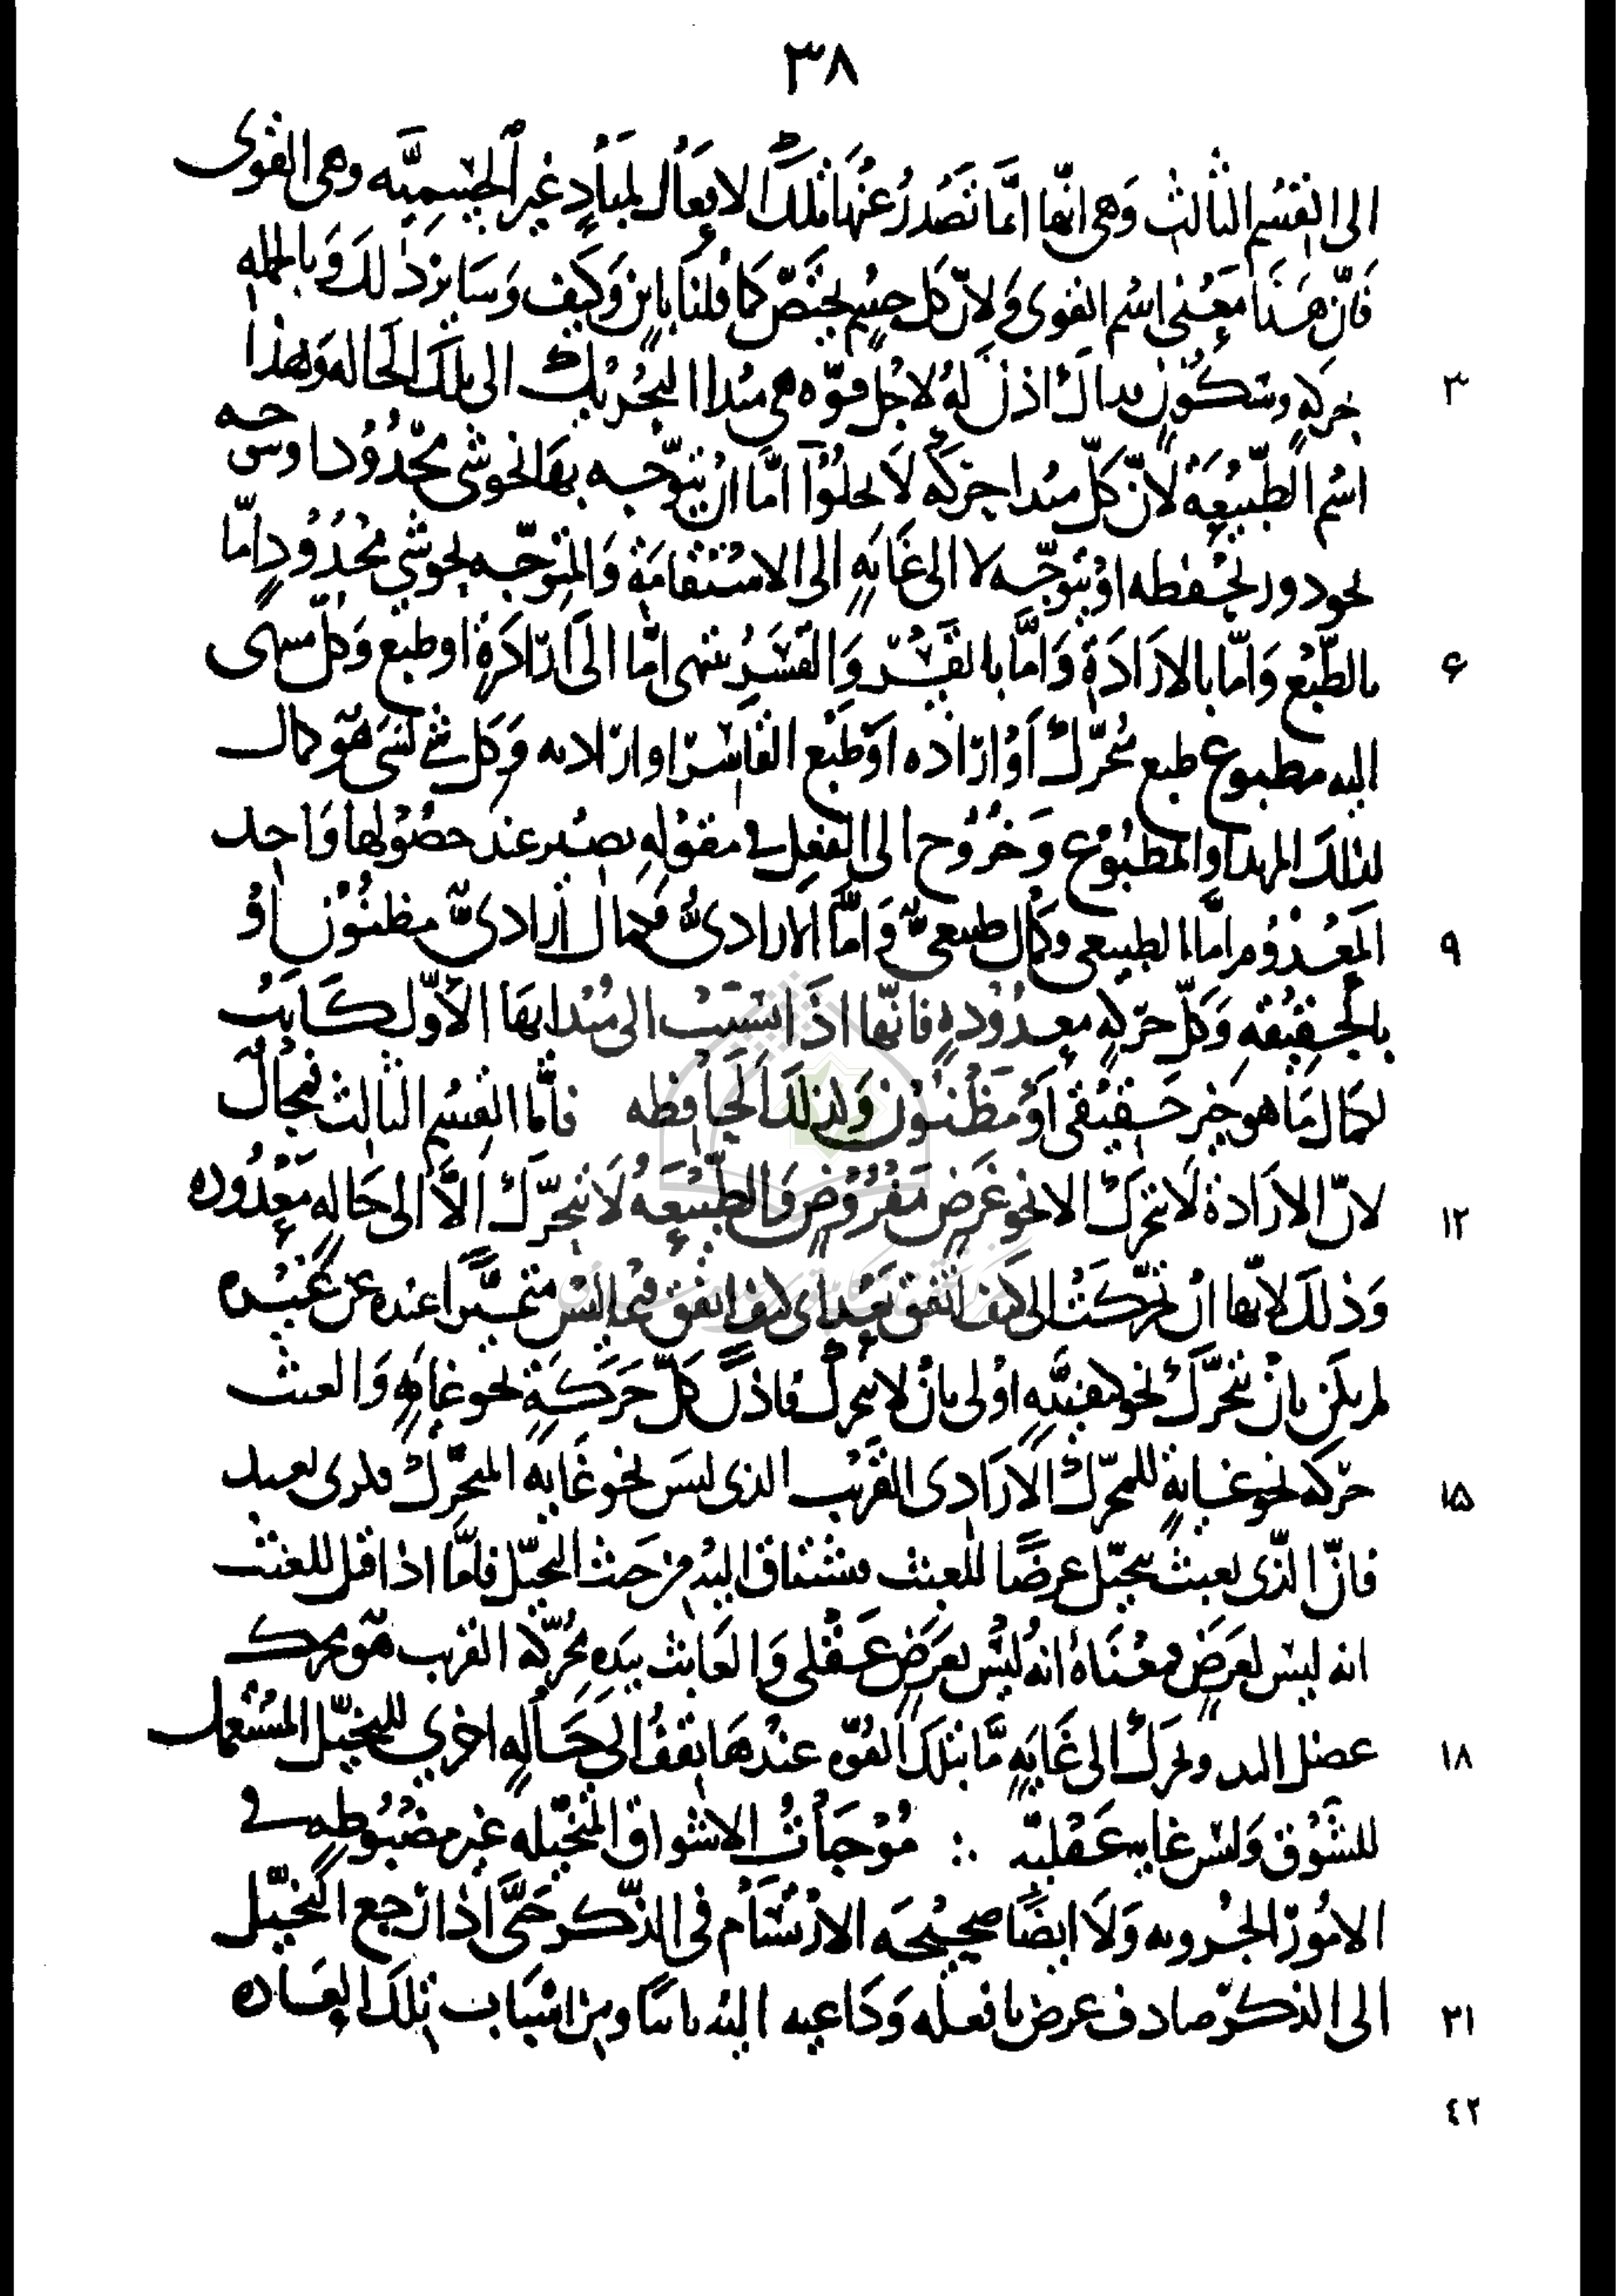 ٣٨
الى القسم الثالث وَهى انها انّما تَصْدرُ عَنْهَا تلك الافعال لمبادٍ غير الجسميّه وهى القوى
فَانّ هَذا مَعْنى اسْم القوى وَلانّ كل جسْم يختَصّ كما قلنا باين وَكيف وَسَاير ذلك وَبالجمله
حركهٍ وسكون فذلك اذن لهُ لاجل قوّه هى مبدا التحريك الى تلك الحَاله وَهذا
اسْم الطّبيعَة لانّ كلّ مبدا حركه لا يخلوا امّا ان يتوّجه بها نحو شى محْدُود او يتوجه
نحو دور يحفظه او يتوجّه لا الى غَايَهٍ الى الاستقامَة وَالمتوجّه نحو شيٍ محْدُودٍ امّا
بالطّبْع وَامّا بالارَادَة وَامّا بالقسْر وَالقسْرُ ينتهى امّا الى ارَادَةٍ او طبع وَكلّ منتهى
اليه مطبوع طبع محرّك اوْ ارَاده اوْ طَبْع القاسِر او ارادته وَكل شىء لشى هو كمال
لذلك المريد او المطبُوع وَخرُوج الى الفعل فى مقوله يصير عند حصُولها وَاحد
المعْدُوم امّا الطبيعى وكمال طبيعىّ وَامّا الارادىُّ فكمال ارادىّ مظنُون اوْ
بالحقيقه وَكلّ حركهٍ معدُودهٍ فانّها اذا انتسبت الى مبْدائها الاوّل كَانت
لكمال مَا هو خير حَقيقى اَوْ مَظْنوُن وَلذلك الحَافظه فَامّا القسْم الثالث فمحال
لانّ الارَادة لَا تحرك الا نحو غَرَض مَفْرُوضٍ وَالطّبيْعَهُ لَا تحرّك الّا الى حَالهٍ معْدُوده
وَذلكَ لانّها ان تحرّكتْ الى كيف اتّفق بَعْد اى كيف اتفق فيما ليس متميّزًا عنده عن غيْره
لم يكن بانْ تحرَّك نحو كيفيّهٍ اوْلى بان لا يحرّك فاذن كلّ حَرَكَةٍ نحو غايَهٍ وَالعبث
حركه نحو غايةٍ للمحرّك الارَادِى القَريْب الذى ليسَ نحو غَايه المحرّك فكرى بعيد
فانّ الّذى يعبث يتخيّل غرضًا للعبث فيشتاق اليه من حَيث التخيّل فامَّا اذا قيل للعبث
انه ليس لغَرَضٍ فمعْنَاهُ انهُ ليسَ لغَرضٍ عَقْلى وَالعَابث بيَدِه محُرّكه القريب هو محرك
عضل اليد ويحرك الى غَايَهٍ مَّا بتلك القوّه عندهَا يقفُ الى حَالهٍ اخرى للتخيّل المسْتعمل
للشَّوْق وَليْسَ غايه عَقْليّه ∴ مُوْجبَاتُ الاشواق المتخيّله غير مضبُوطهٍ فى
الامُور الجزويه وَلَا ايضًا صحيْحَه الارْتسَام فى الذّكر حَتَّى اذا رَجع التخيّل
الى الذكر صادف غرض ما فعله وَدَاعيه اليه ثابتًا ومن اسْبَاب تلكَ العَاده
٣
۶
٩
١٢
١۵
١٨
٢١
٤٢